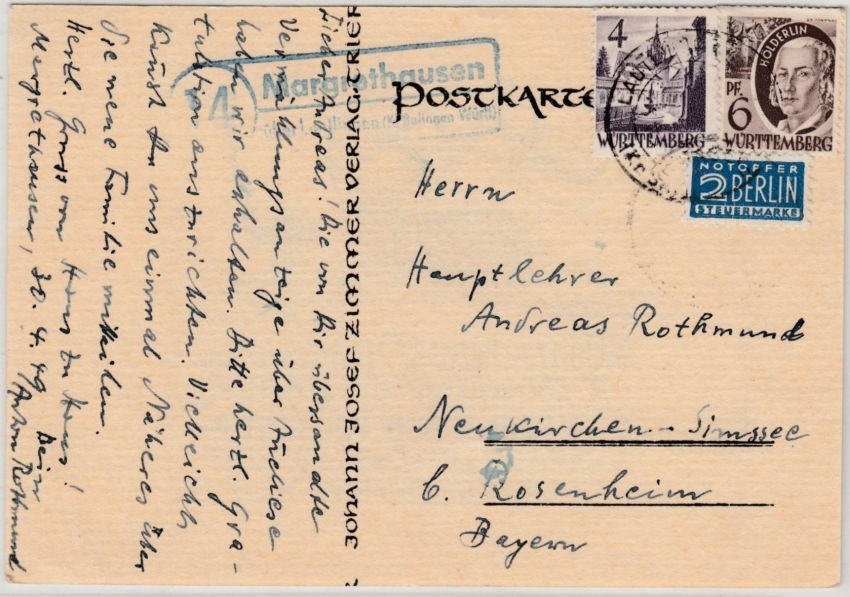 Lieber Andreas! Die von Dir übersandte
Vermählungsanzeige über Anneliese
haben wir erhalten. Bitte herzl. Gra-
tulation auszurichten. Vielleicht
kannst Du uns einmal Näheres über
die neue Familie mitteilen.
Herzl. Gruss von Haus zu Haus!
Margrethausen, 30. 4. 49 Dein
Anton Rothmund
JOHANN JOSEF ZIMMER VERLAG·TRIER
14
Margrethausen
(Kr. Balingen Württ)
POSTKARTE
4
WÜRTTEMBERG
HÖLDERLIN
PF.
6
WÜRTTEMBERG
LAUTL
NOTOPFER
2 BERLIN
STEUERMARKE
Herrn
Hauptlehrer
Andreas Rothmund
Neukirchen-Simssee
b. Rosenheim
Bayern